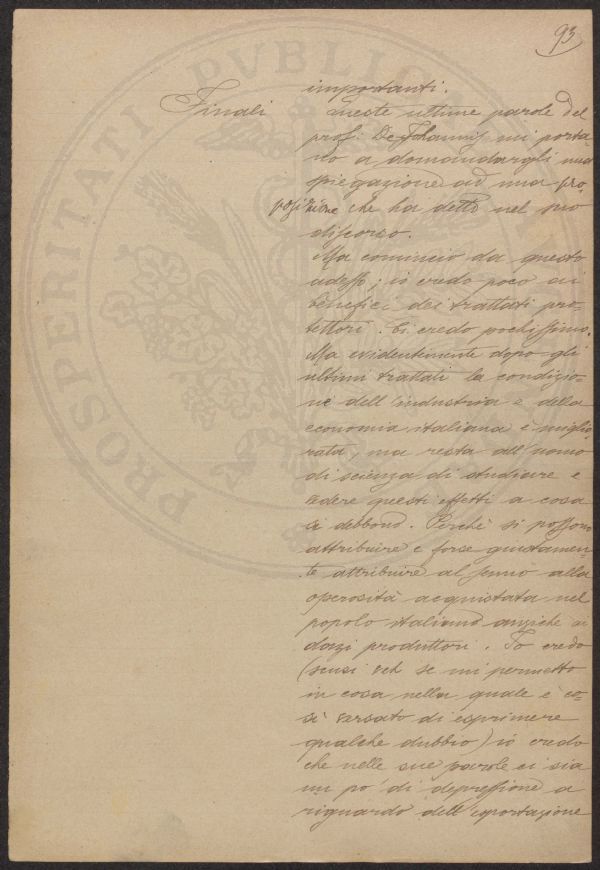 93
importanti.
Finali Queste ultime parole del
prof. De Johannis mi porta-
no a domandargli una
spiegazione ad una pro-
posizione che ha detto nel suo
discorso.
Ma comincio da questo
adesso; io credo poco ai
benefici dei trattati pro-
tettori. Ci credo pochissimo.
Ma evidentemente dopo gli
ultimi trattati la condizio-
ne dell'industria e della
economia italiana è miglio-
rata, ma resta all'uomo
di scienza di studiare e
vedere questi effetti a cosa
si debbono. Perchè si possono
attribuire e forse giustamen-
te attribuire al senno alla
operosità acquistata nel
popolo italiano anzichè ai
dazi produttori. Io credo
(scusi se mi permetto
in cosa nella quale è co-
sì versato di esprimere
qualche dubbio) io credo
che nelle sue parole ci sia
un po' di depressione a
riguardo dell'esportazione
PROSPERITATI PVBLICAE